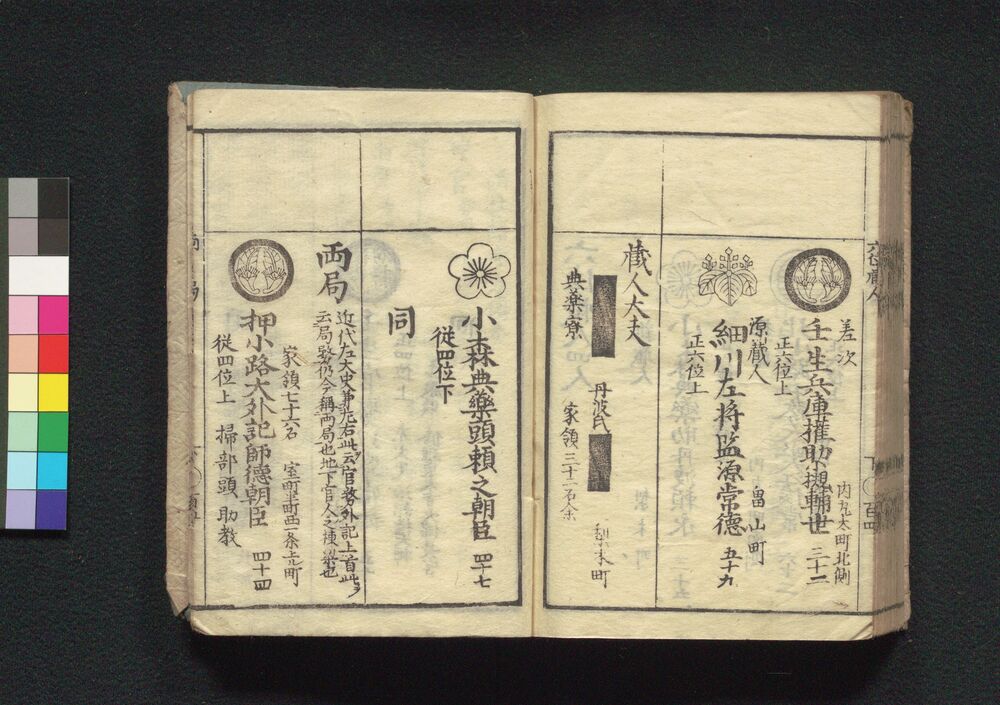 差次
壬生兵庫権助
輔世
三十二
正六位上
内丸太町北側
源蔵人
細川左将監源常徳
五十九
正六位上
畠山町
蔵人大夫
典薬寮
丹波氏
家領三十二石余
梨木町
小森典薬頭頼之朝臣
四十七
従四位下
同
両局
近代左大史兼左右此ヲ云官務外記上首此ヲ
云局務仍今称両局也地下官人之棟梁也
家領七十六石
室町半町西一条上ル町
押小路大外記師徳朝臣
四十四
従四位上
掃部頭
助教